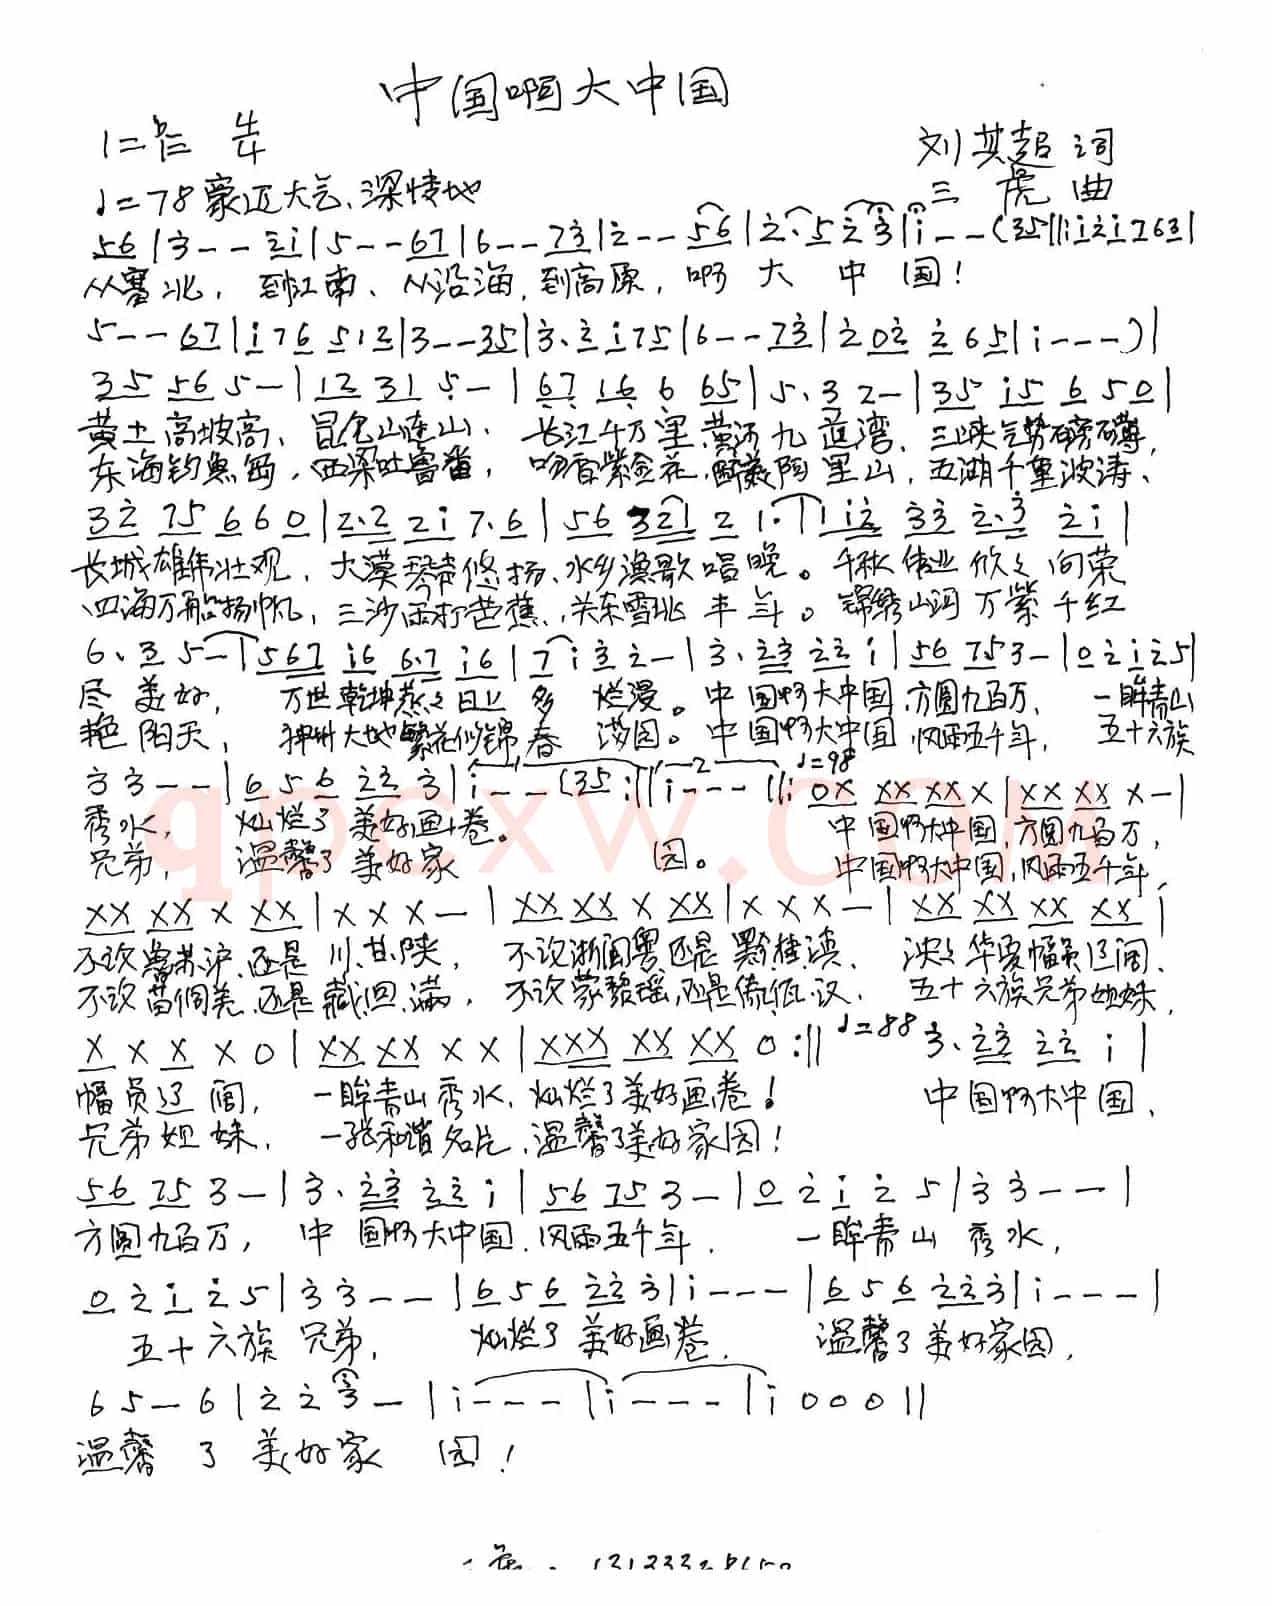 中国啊大中国
1=♭E 4/4
刘英超 词
♩=78 豪迈大气、深情地
三虎 曲
56|3--2i|5--67|6--73|2--56|2·523|i--(35|i i2i763|
从塞北,到江南、从沿海,到高原,啊大中国!
5--67|i76512|3--35|3·2i75|6--73|202265|i---)|
35 56 5-|12 31 5-|67 16 6 65|5·32-|35 i5 6 50|
黄土高坡高、昆仑山连山、长江千万里黄河九道湾、三峡气势磅礴,
东海钓鱼岛,西梁吐鲁番,吻香紫金花,醉美阿里山,五湖千里波涛、
32 75 6 60|2·2 2i 7·6|56 321 2 1·1|i2 33 2·3 2i|
长城雄伟壮观,大漠琴带悠扬、水乡渔歌唱晚。千秋伟业欣欣向荣
四海万船扬帆,三沙雨打芭蕉、关东雪兆丰年。锦绣山河万紫千红
6·3 5-|567 i6 6·7 i6|7i32-|3·23 22 i|56 75 3-|02i25|
尽美好,万世乾坤蒸蒸日上多烂漫。中国啊大中国,方圆九百万,一眸青山
艳阳天,神州大地繁花似锦春满园。中国啊大中国,风雨五千年,五十六族
33--|656 22 3|i---(35:‖i---(‖: ♩=98 0X XX XX X|XX XX X-|
秀水,灿烂了美好画卷。中国啊大中国,方圆九百万,
兄弟,温馨了美好家园。中国啊大中国,风雨五千年,
XX XX X XX|X X X-|XX XX X XX|X X X-|XX XX XX XX|
不议粤苏沪、还是川甘陕,不议浙闽粤还是黔桂滇、泱泱华夏幅员辽阔、
不议苗侗羌、还是藏回满,不议蒙黎瑶,还是傣佤汉、五十六族兄弟姐妹,
X X X X 0|XX XX X X|XXX XX XX 0:‖ ♩=88 3·23 22 i|
幅员辽阔,一眸青山秀水,灿烂了美好画卷!中国啊大中国、
兄弟姐妹、一张和谐名片、温馨了美好家园!
56 75 3-|3·23 22 i|56 75 3-|02i25|33--|
方圆九百万,中国啊大中国、风雨五千年、一眸青山秀水,
02i25|33--|656 22 3|i---|656 22 3|i---|
五十六族兄弟,灿烂了美好画卷、温馨了美好家园,
65-6|223-|i---|i---|i000‖
温馨了美好家园!
qpcxw.com